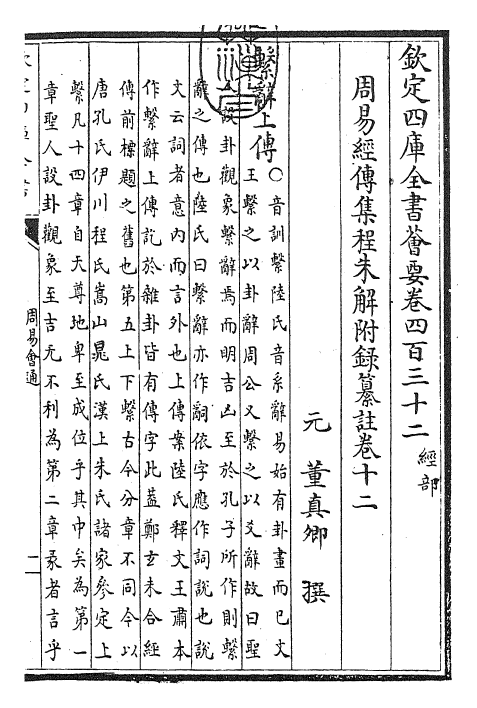 欽定四庫全書薈要卷四百三十二 經部
周易經傳集程朱解附錄纂註卷十二
元 董真卿 撰
繫辭上傳○音訓繫陸氏音系辭易始有卦畫而已文
王繫之以卦辭周公又繫之以爻辭故曰聖
人設卦觀象繫辭焉而明吉凶至於孔子所作則繫
辭之傳也陸氏曰繫辭亦作嗣依字應作詞說也說
文云詞者意内而言外也上傳案陸氏釋文王肅本
作繫辭上傳訖於雜卦皆有傳字此蓋鄭玄未合經
傳前標題之舊也第五上下繫古今分章不同今以
唐孔氏伊川程氏嵩山晁氏漢上朱氏諸家參定上
繫凡十四章自天尊地卑至成位乎其中矣為第一
章聖人設卦觀象至吉无不利為第二章彖者言乎
周易會通
一